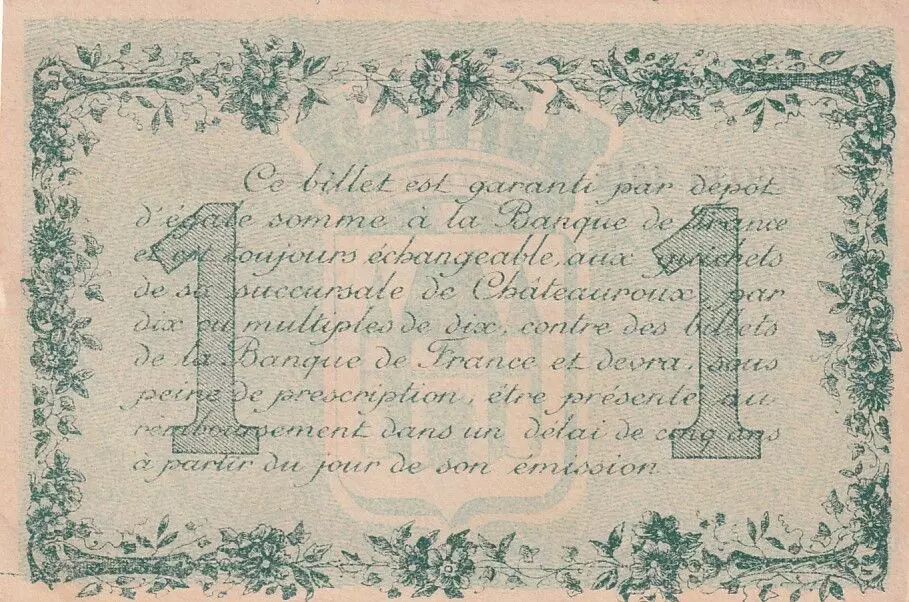 Ce billet est garanti par dépôt
d'égale somme à la Banque de France
et est toujours échangeable, aux guichets
de sa succursale de Châteauroux, par
dix ou multiples de dix, contre des billets
de la Banque de France et devra, sous
peine de prescription, être présenté au
remboursement dans un délai de cinq ans
à partir du jour de son émission.
1 1